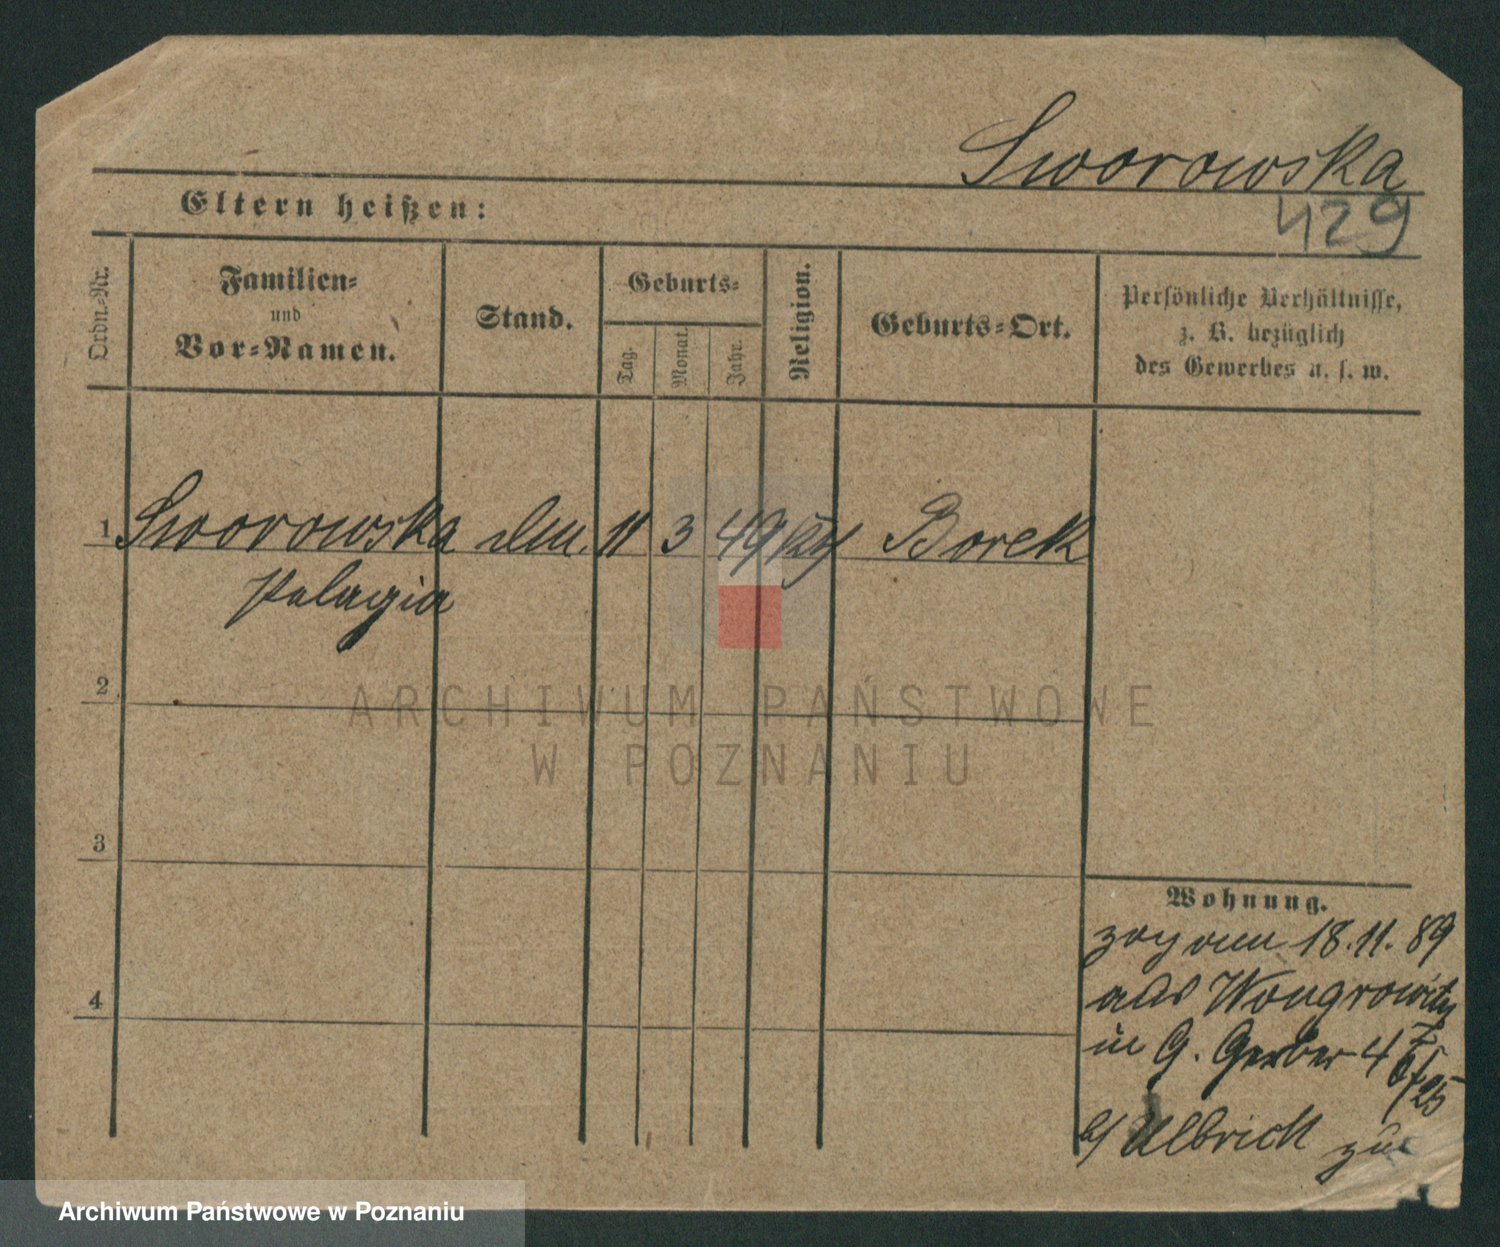 Sworowska
429
Eltern heißen:
Ordn.-Nr.
Familien-
und
Vor-Namen.
Stand.
Geburts-
Tag.
Monat.
Jahr.
Religion.
Geburts-Ort.
Persönliche Verhältnisse,
z. B. bezüglich
des Gewerbes u. s. w.
1 Sworowska 11 3 49 Borek
Pelagia
2
ARCHIWUM PAŃSTWOWE
W POZNANIU
3
Wohnung.
zog am 18.11.89
aus Wongrowitz
4
in G. Gerber 4
b/ Ulbrich zu
Archiwum Państwowe w Poznaniu